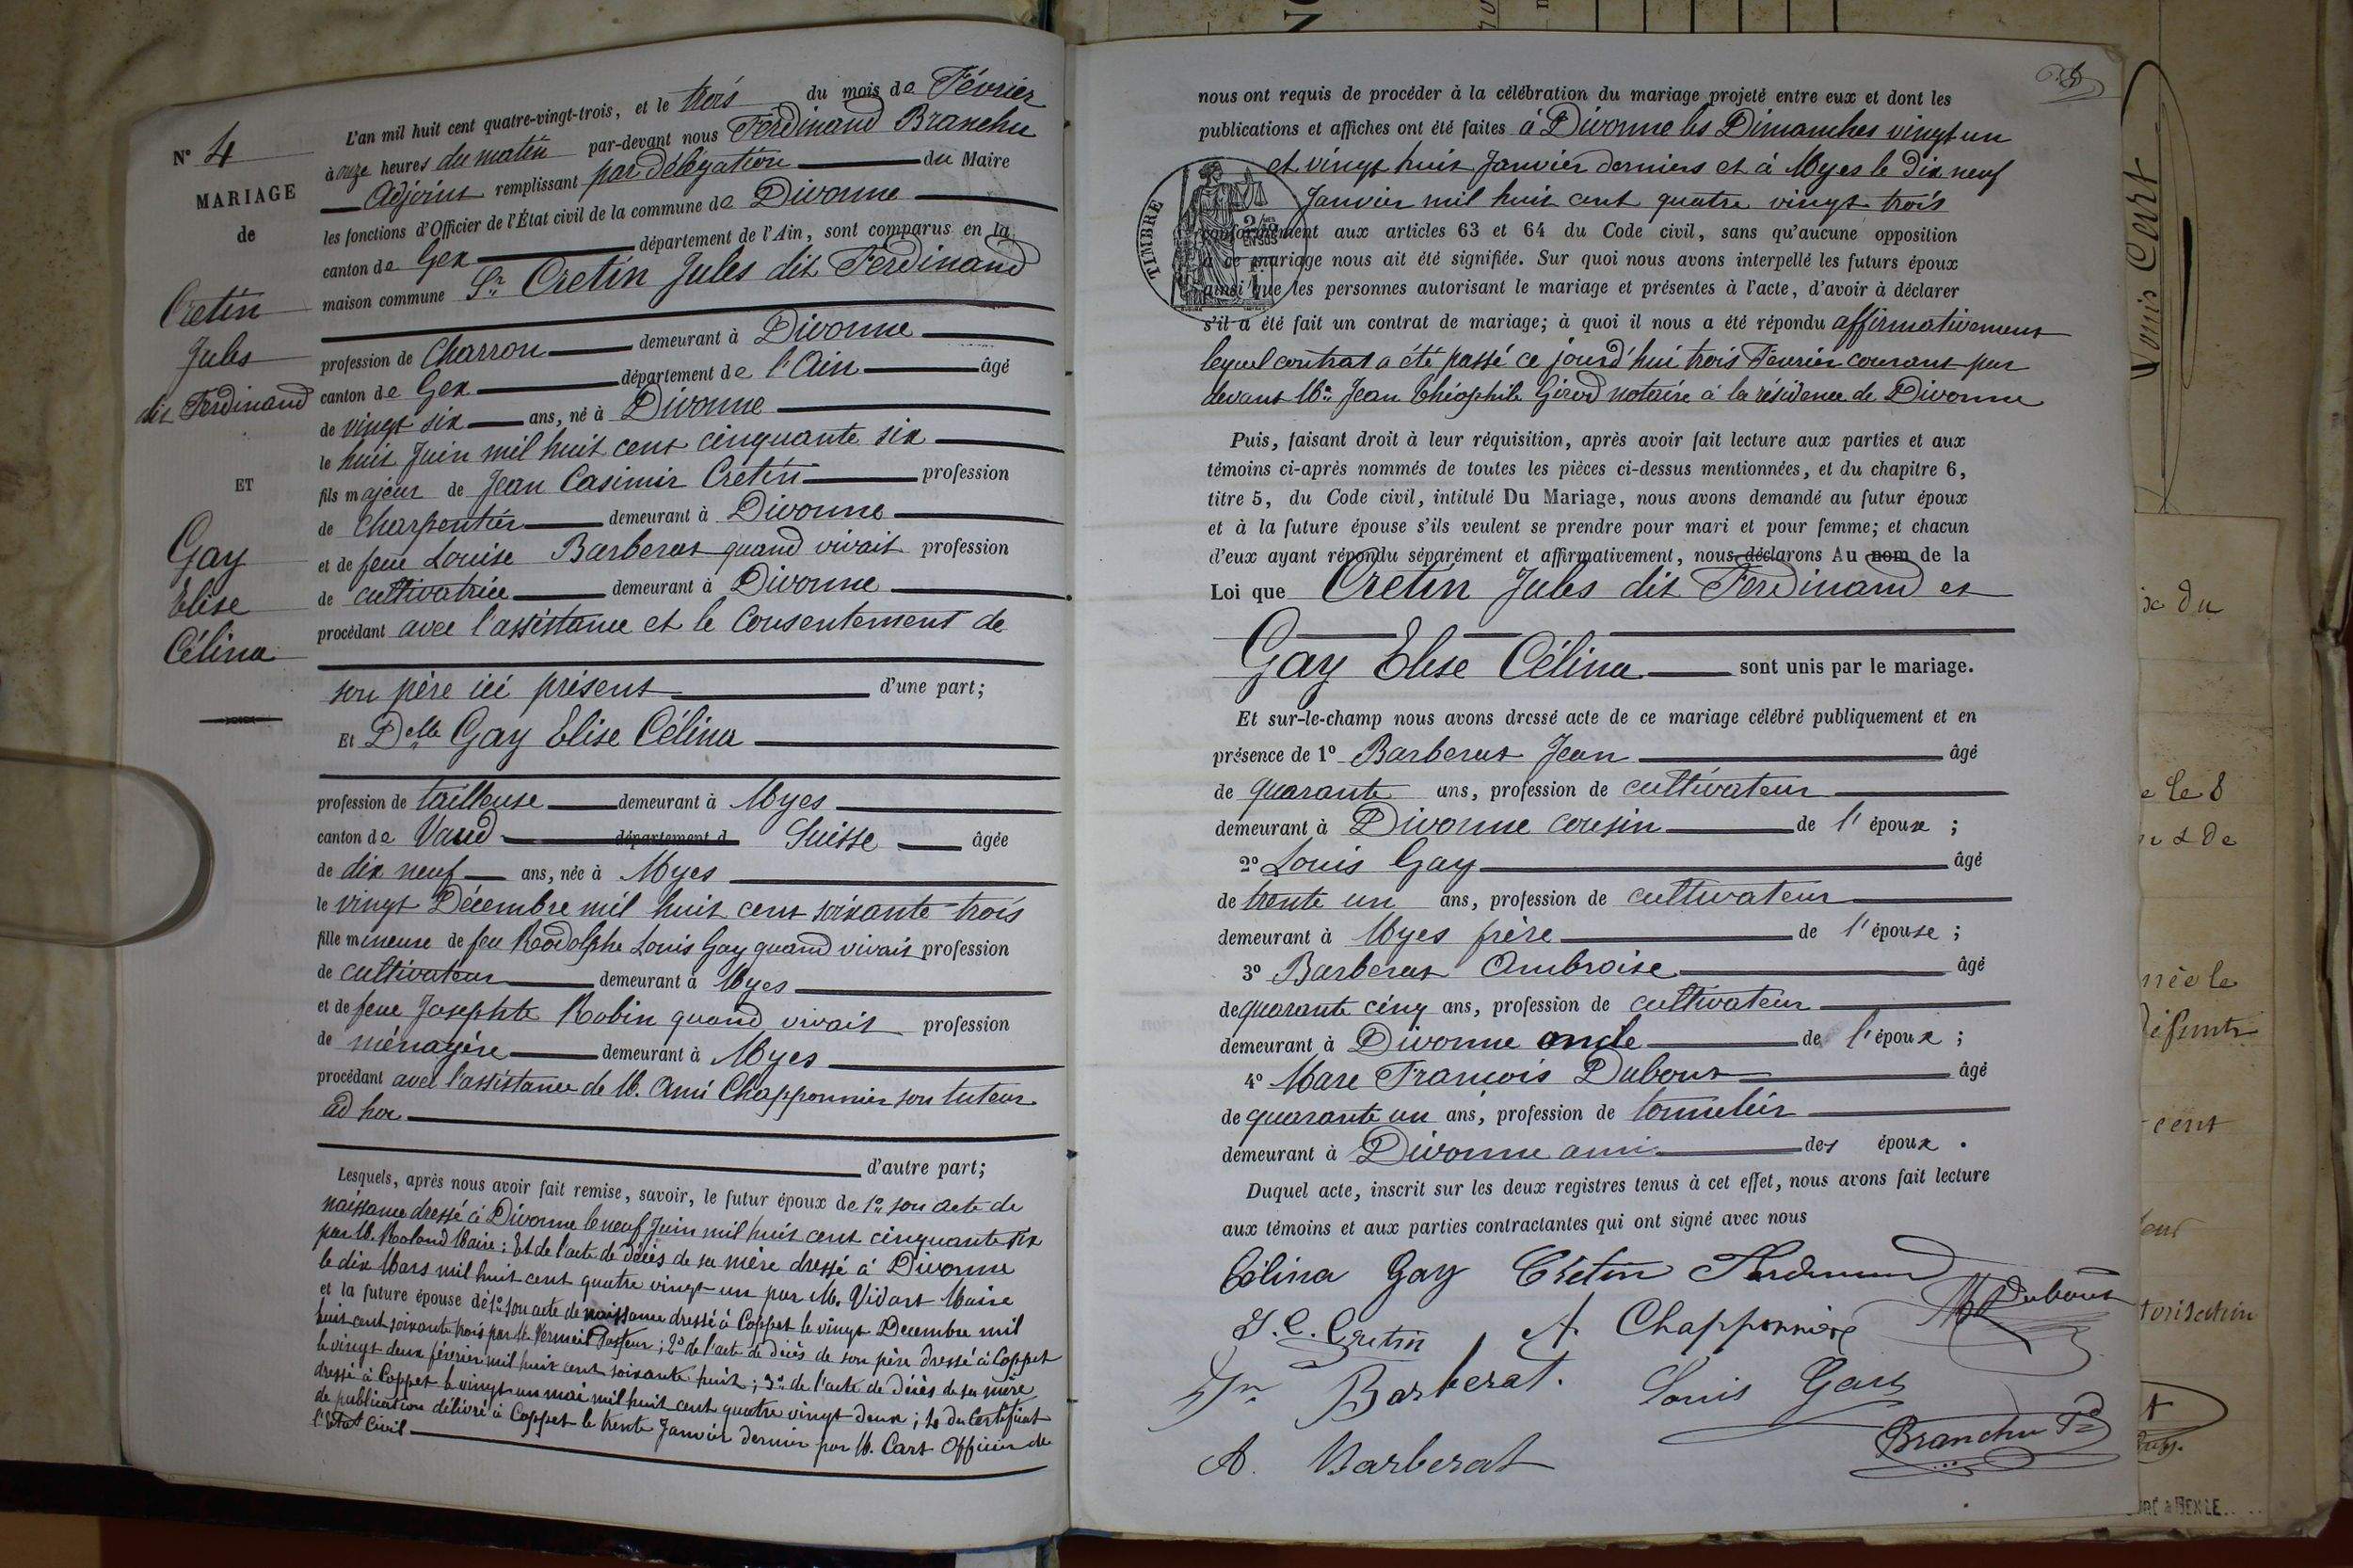 N° 4
MARIAGE
de
Cretin
Jules
dit Ferdinand
ET
Gay
Elise
Célina
L'an mil huit cent quatre-vingt-trois, et le trois du mois de Février
à onze heures du matin par-devant nous Ferdinand Branchu
Adjoint remplissant par délégation du Maire
les fonctions d'Officier de l'État civil de la commune de Divonne
canton de Gex département de l'Ain, sont comparus en la
maison commune Sr Cretin Jules dit Ferdinand
profession de Charron demeurant à Divonne
canton de Gex département de l'Ain âgé
de vingt six ans, né à Divonne
le huit Juin mil huit cent cinquante six
fils majeur de Jean Casimir Crétin profession
de Charpentier demeurant à Divonne
et de feue Louise Barberat quand vivait profession
de cultivatrice demeurant à Divonne
procédant avec l'assistance et le Consentement de
son père ici présent d'une part;
Et Delle Gay Elise Célina
profession de tailleuse demeurant à Myes
canton de Vaud département d Suisse âgée
de dix neuf ans, née à Myes
le vingt Décembre mil huit cent soixante trois
fille mineure de feu Rodolphe Louis Gay quand vivait profession
de cultivateur demeurant à Myes
et de feue Josephte Robin quand vivait profession
de ménagère demeurant à Myes
procédant avec l'assistance de M. Ami Chapponnier son tuteur
ad hoc
d'autre part;
Lesquels, après nous avoir fait remise, savoir, le futur époux de 1° son acte de
naissance dressé à Divonne le neuf Juin mil huit cent cinquante six
par M. Roland Maire; Et de l'acte de décès de sa mère dressé à Divonne
le dix Mars mil huit cent quatre vingt un par M. Vidart Maire
et la future épouse de 1° son acte de naissance dressé à Coppet le vingt Decembre mil
huit cent soixante trois par M. Vermeil Pasteur; 2° de l'acte de décès de son père dressé à Coppet
le vingt deux février mil huit cent soixante huit; 3° de l'acte de décès de sa mère
dressé à Coppet le vingt un mai mil huit cent quatre vingt deux; 4° du Certificat
de publication délivré à Coppet le trente Janvier dernier par M. Cart Officier de
l'Etat Civil
nous ont requis de procéder à la célébration du mariage projeté entre eux et dont les
publications et affiches ont été faites à Divonne les Dimanches vingt un
et vingt huit Janvier derniers et à Myes le Dix neuf
Janvier mil huit cent quatre vingt trois
TIMBRE
conformément aux articles 63 et 64 du Code civil, sans qu'aucune opposition
à ce mariage nous ait été signifiée. Sur quoi nous avons interpellé les futurs époux
ainsi que les personnes autorisant le mariage et présentes à l'acte, d'avoir à déclarer
s'il a été fait un contrat de mariage; à quoi il nous a été répondu affirmativement
lequel contrat a été passé ce jourd'hui trois Fevrier courant par
devant Me Jean Théophile Girod notaire à la résidence de Divonne
Puis, faisant droit à leur réquisition, après avoir fait lecture aux parties et aux
témoins ci-après nommés de toutes les pièces ci-dessus mentionnées, et du chapitre 6,
titre 5, du Code civil, intitulé Du Mariage, nous avons demandé au futur époux
et à la future épouse s'ils veulent se prendre pour mari et pour femme; et chacun
d'eux ayant répondu séparément et affirmativement, nous déclarons Au nom de la
Loi que Cretin Jules dit Ferdinand et
Gay Elise Célina sont unis par le mariage.
Et sur-le-champ nous avons dressé acte de ce mariage célébré publiquement et en
présence de 1° Barberat Jean âgé
de quarante ans, profession de cultivateur
demeurant à Divonne cousin de l'époux;
2° Louis Gay âgé
de trente un ans, profession de cultivateur
demeurant à Myes frère de l'épouse;
3° Barberat Ambroise âgé
de quarante cinq ans, profession de cultivateur
demeurant à Divonne oncle de l'époux;
4° Marc François Dubout âgé
de quarante un ans, profession de tonnelier
demeurant à Divonne ami des époux.
Duquel acte, inscrit sur les deux registres tenus à cet effet, nous avons fait lecture
aux témoins et aux parties contractantes qui ont signé avec nous
Célina Gay Crétin Ferdinand
J. C. Cretin A. Chapponnier Dubout
Jn Barberat. Louis Gay
A. Barberat Branchu Fd
Louis Cart